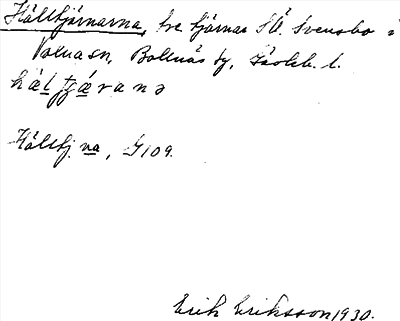 Hälltjärnarna, tre tjärnar SÖ. Svensbo i
Voxna sn, Bollnäs tg, Gävleb. l.
hä̱l tjä̱rana
Hälltj. na, G109.
Erik Eriksson 1930.